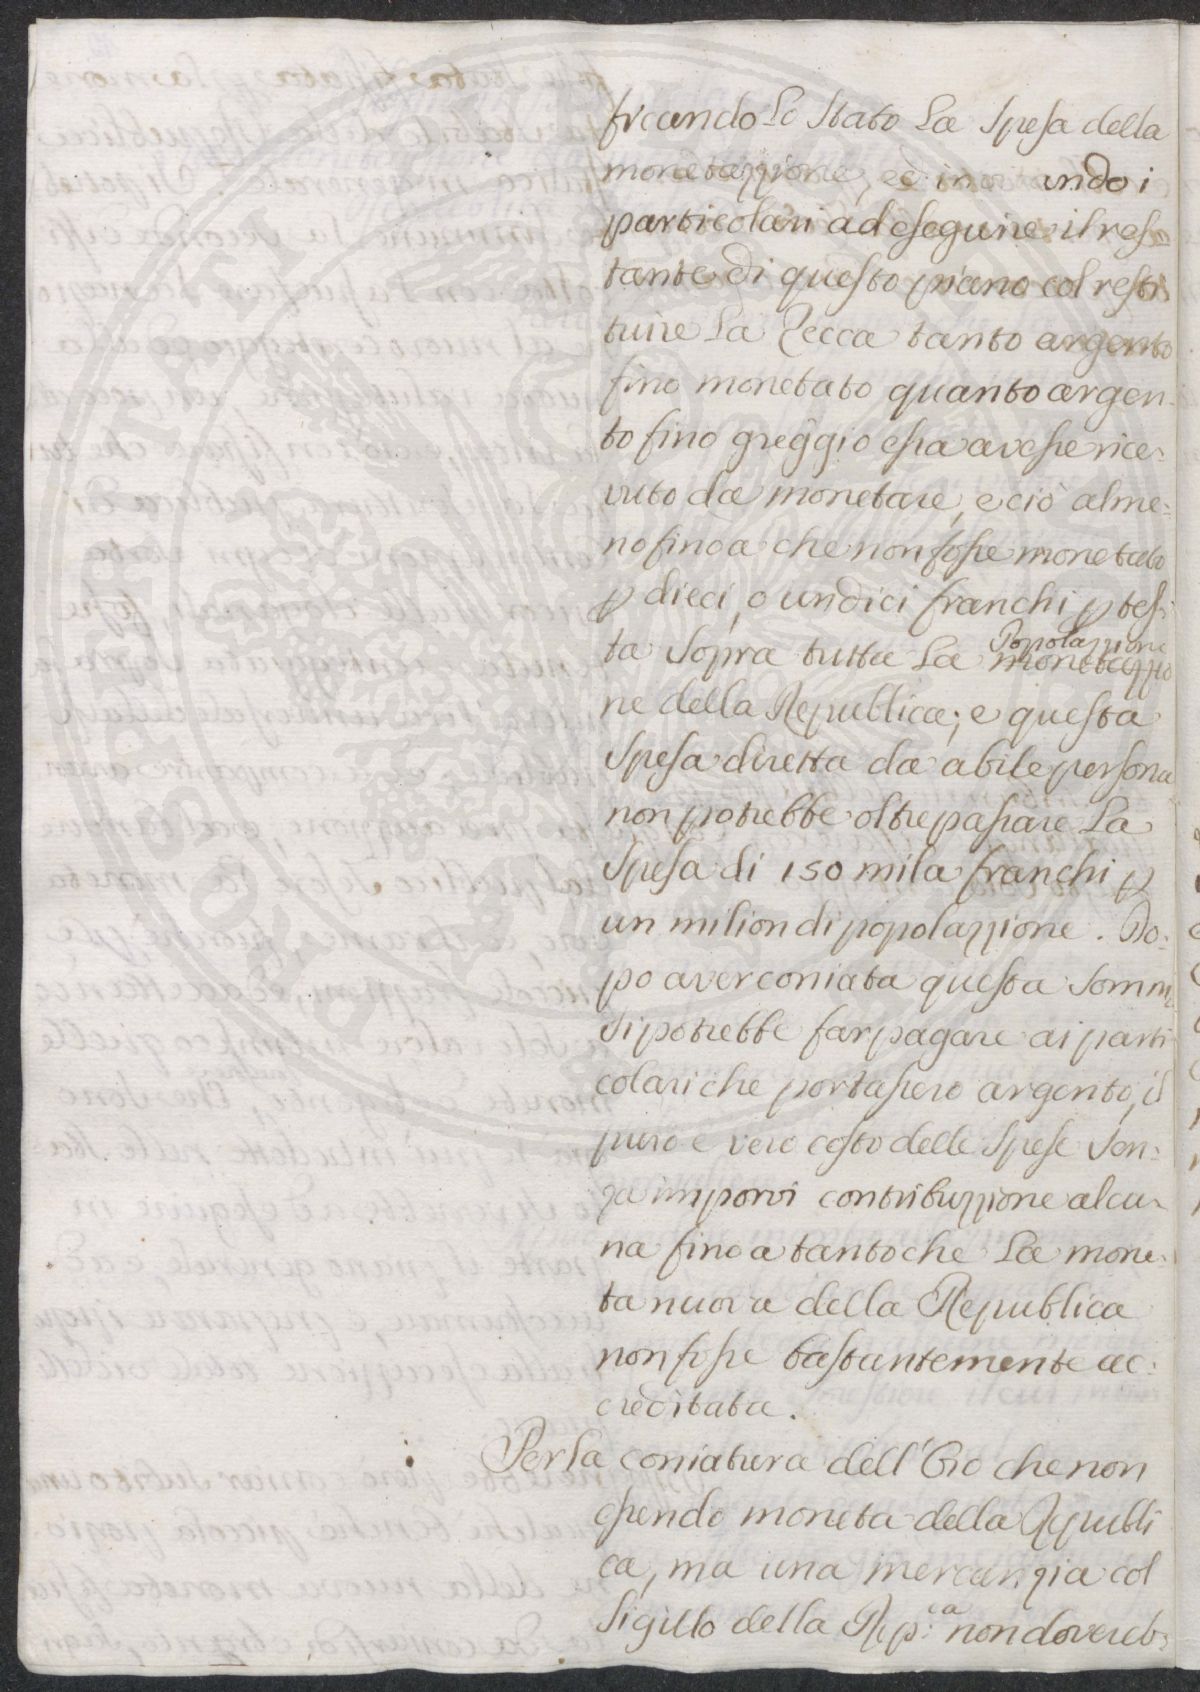 ficando lo Stato la Spesa della
monetazzione, ed invitando i
particolari ad eseguire il res=
tante di questo piano col resti
tuire la Zecca tanto argento
fino monetato quanto argen=
to fino greggio essa avesse rice=
vuto da monetare, e ciò alme=
no fino a che non fosse monetato
p dieci, o undici franchi p tes=
ta sopra tutta la monetazzio
Popolazzione
ne della Republica; e questa
spesa diretta da abile persona
non potrebbe oltrepassare la
spesa di 150 mila franchi p
un milion di popolazzione. Do=
po aver coniata questa somma
si potrebbe far pagare ai parti
colari che portassero argento, il
puro e vero costo delle spese sen=
za imporvi contribuzzione alcu=
na fino a tanto che la mone=
ta nuova della Republica
non fosse bastantemente ac=
creditata.
Per la coniatura dell'Oro che non
essendo moneta della Republi
ca, ma una mercanzia col
Sigillo della Rep:ca non dovereb=